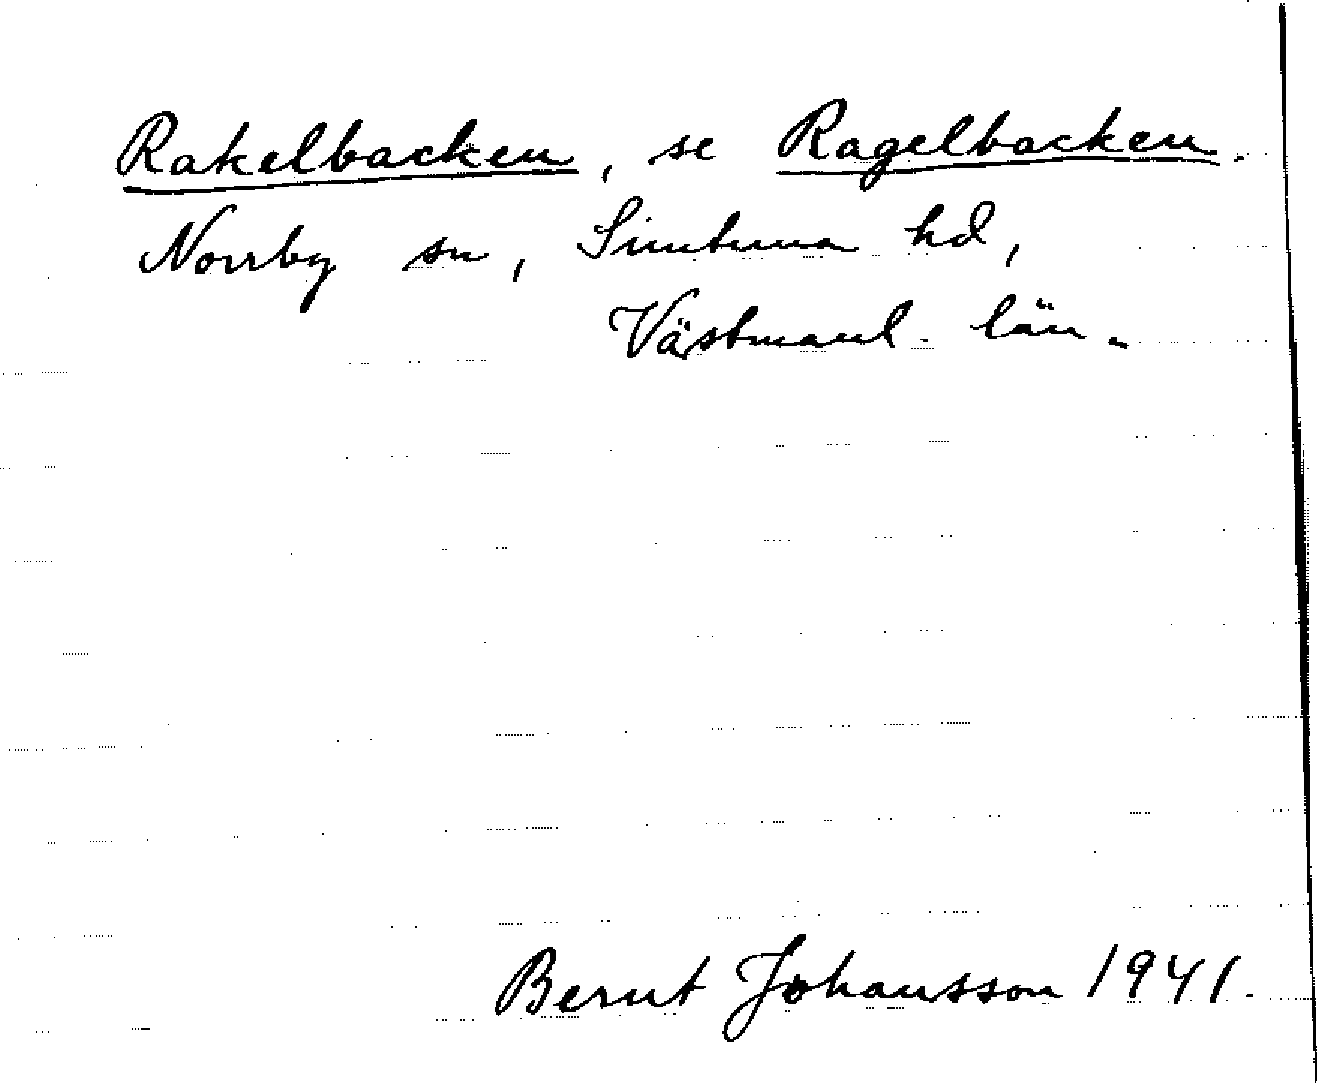 Rakelbacken, se Ragelbacken.
Norrby sn, Simtuna hd,
Västmanl. län.
Bernt Johansson 1941.